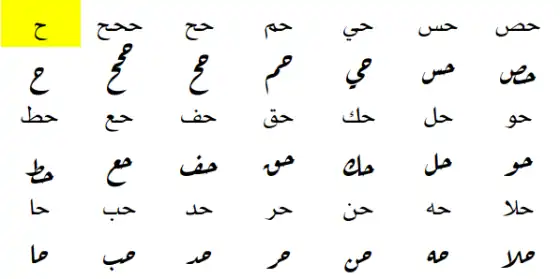 حص حس حي حم حح ححح ح
حص حس حي حم حح ححح ح
حو حل حك حق حف حع حط
حو حل حك حق حف حع حط
حلا حه حن حر حد حب حا
حلا حه حن حر حد حب حا